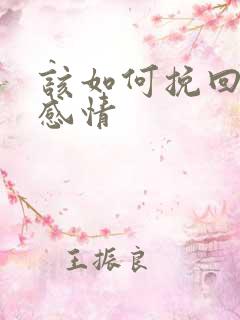 該如何挽回
感情
王振良